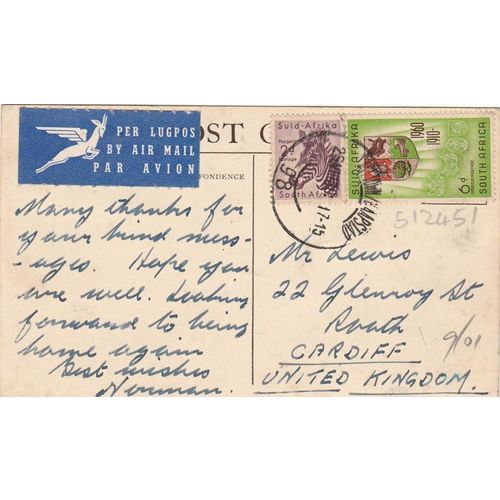 PER LUGPOS
BY AIR MAIL
PAR AVION
OST C
PONDENCE
Suid-Afrika
South Africa
SUID-AFRIKA
1960
1910
SOUTH AFRICA
6d
17-15
512451
9/01
Many thanks for
your kind mess-
ages. Hope you
are well. Looking
forward to being
home again
Best wishes
Norman.
Mr Lewis
22 Glenroy St
Roath
CARDIFF
UNITED KINGDOM.